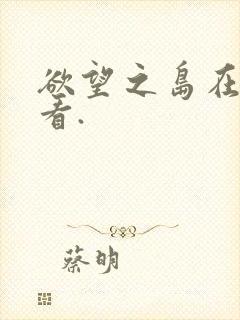 欲望之岛在
看.
蔡明